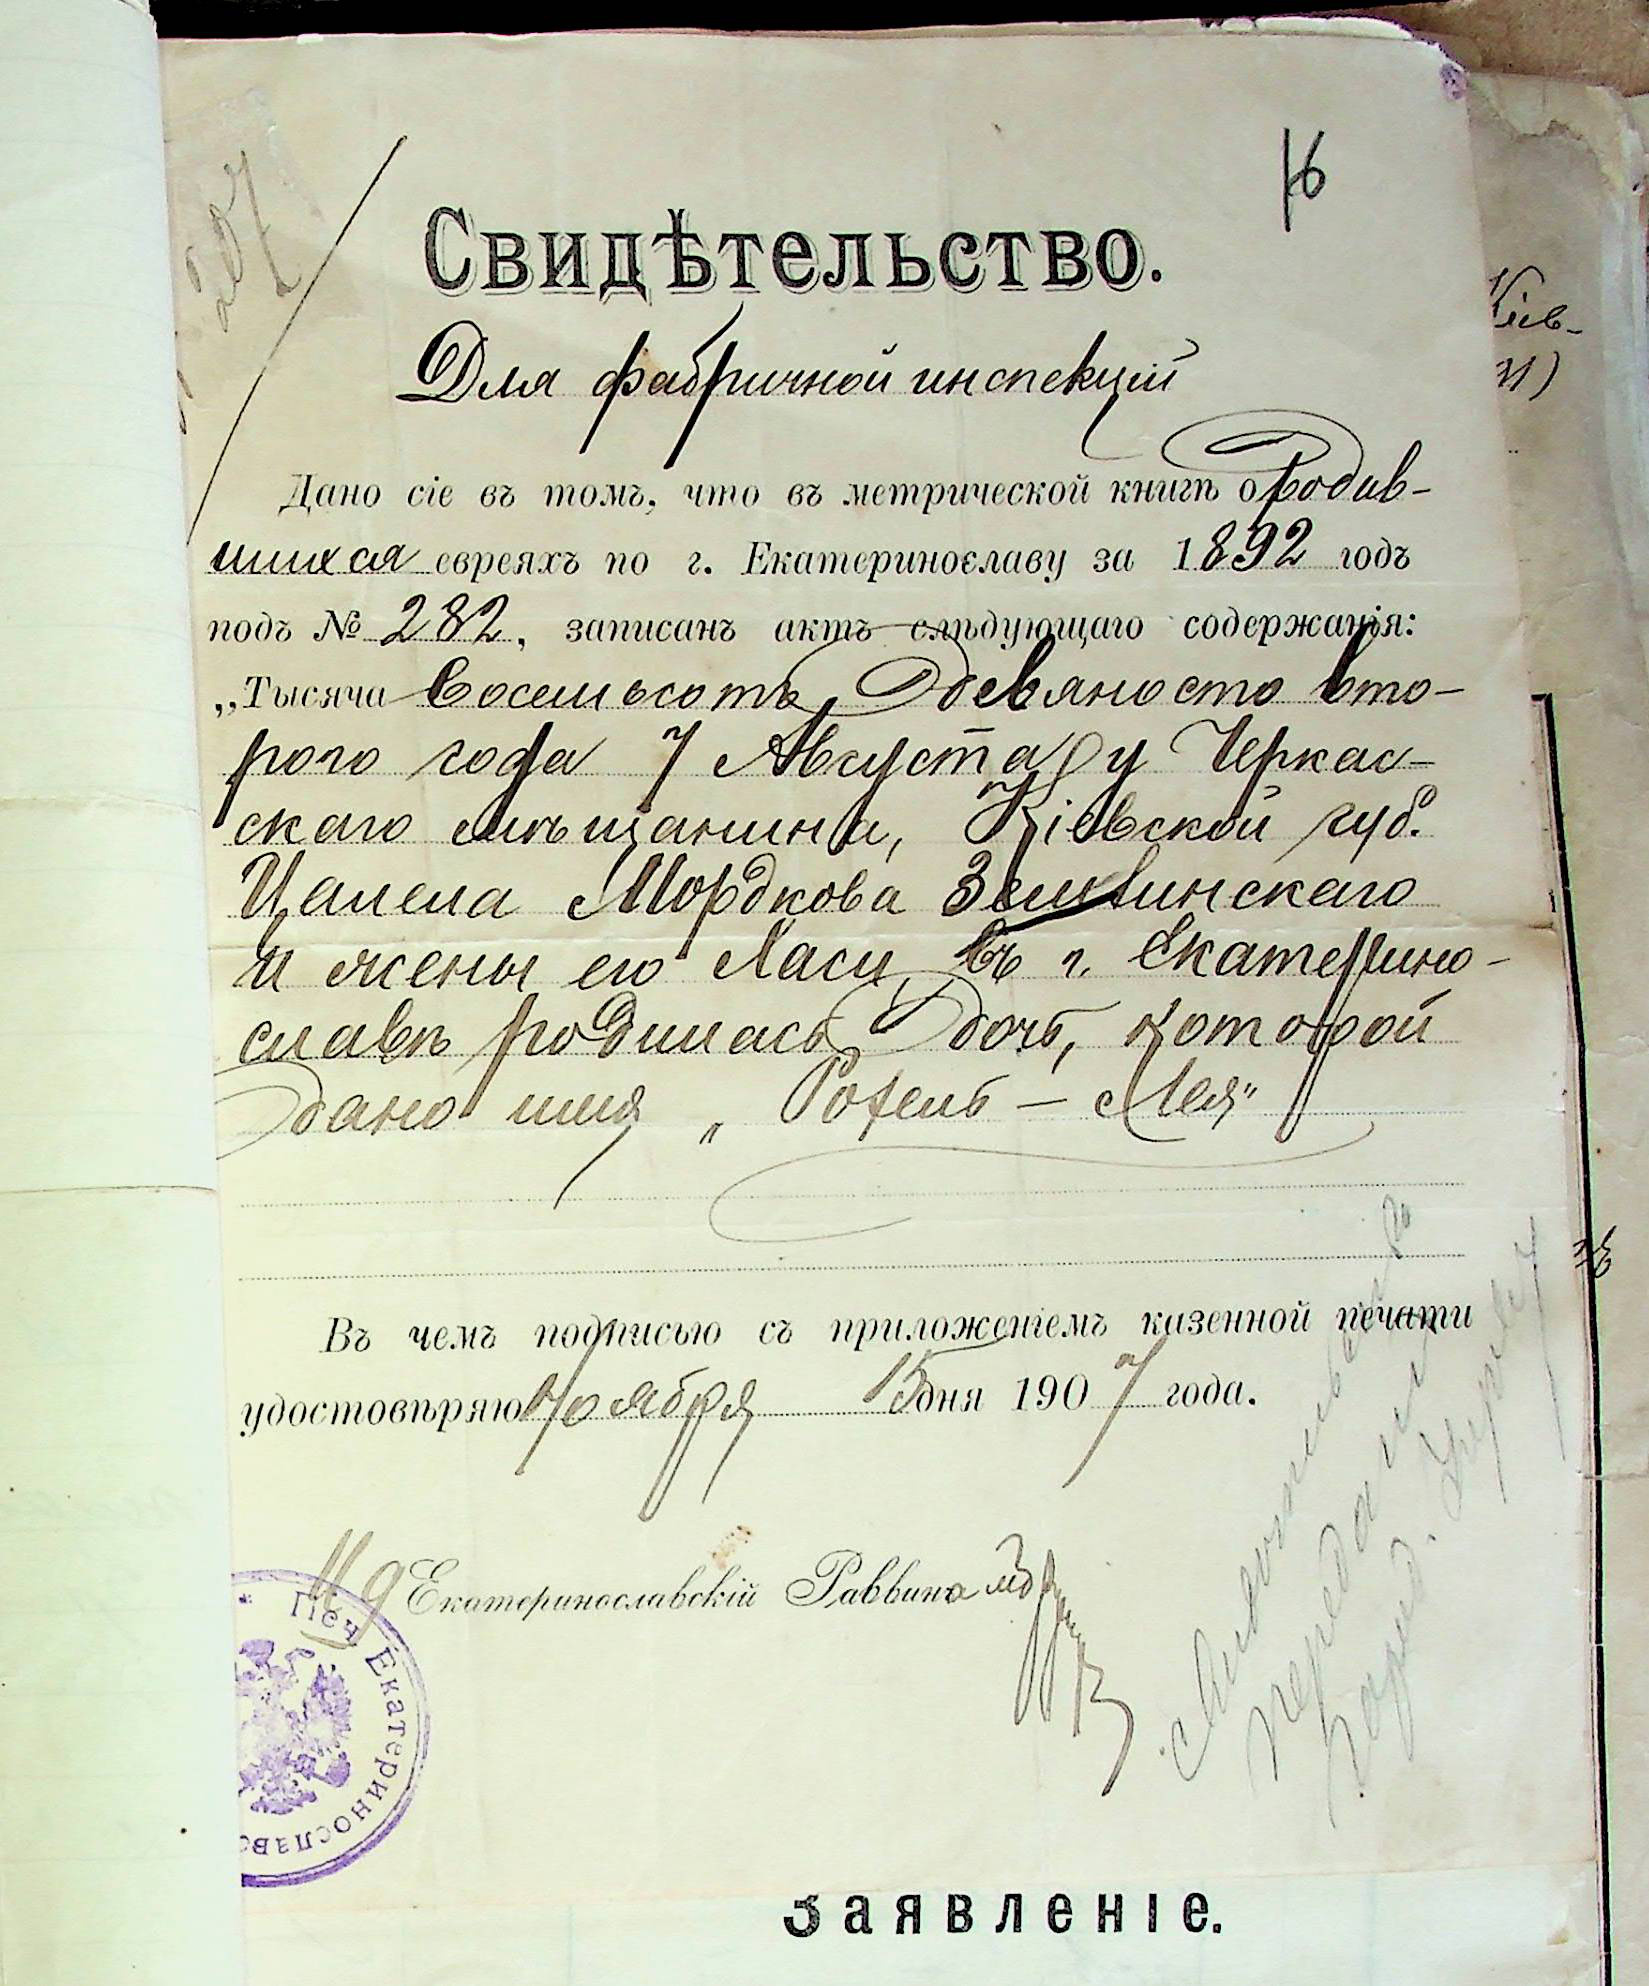 16
Свидѣтельство.
Для фабричной инспекціи
Дано сіе въ томъ, что въ метрической книгѣ о Родив-
шихся евреяхъ по г. Екатеринославу за 1892 годъ
подъ № 282, записанъ актъ слѣдующаго содержанія:
„Тысяча восемьсотъ девяносто вто-
рого года 7 Августа у Черкас-
скаго мѣщанина, Кіевской губ.
Цалела Мордкова
и жены его Хаси, въ г. Екатерино-
славѣ родилась дочь, которой
дано имя „Рохель – Лея"
Въ чемъ подписью съ приложеніемъ казенной печати
удостовѣряю Ноября 15 дня 1907 года.
И д Екатеринославскій Раввинъ
Печ. Екатеринослав
Заявленіе.
Кіев-